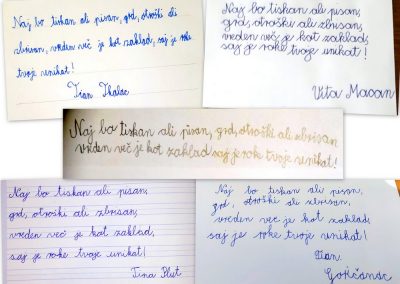 Naj bo tiskan ali pisan, grd, otroški ali
zbrisan, vreden več je kot zaklad, saj je roke
tvoje unikat!
Tian Tkalec
Naj bo tiskan ali pisan,
grd, otroški ali zbrisan,
vreden več je kot zaklad,
saj je roke tvoje unikat!
Vita Macan
Naj bo tiskan ali pisan, grd, otroški ali zbrisan
vreden več je kot zaklad saj je roke tvoje unikat!
Naj bo tiskan ali pisan,
grd, otroški ali zbrisan,
vreden več je kot zaklad,
saj je roke tvoje unikat!
Tina Plut
Naj bo tiskan ali pisan,
grd, otroški ali zbrisan,
vreden več je kot zaklad,
saj je roke tvoje unikat!
Tian